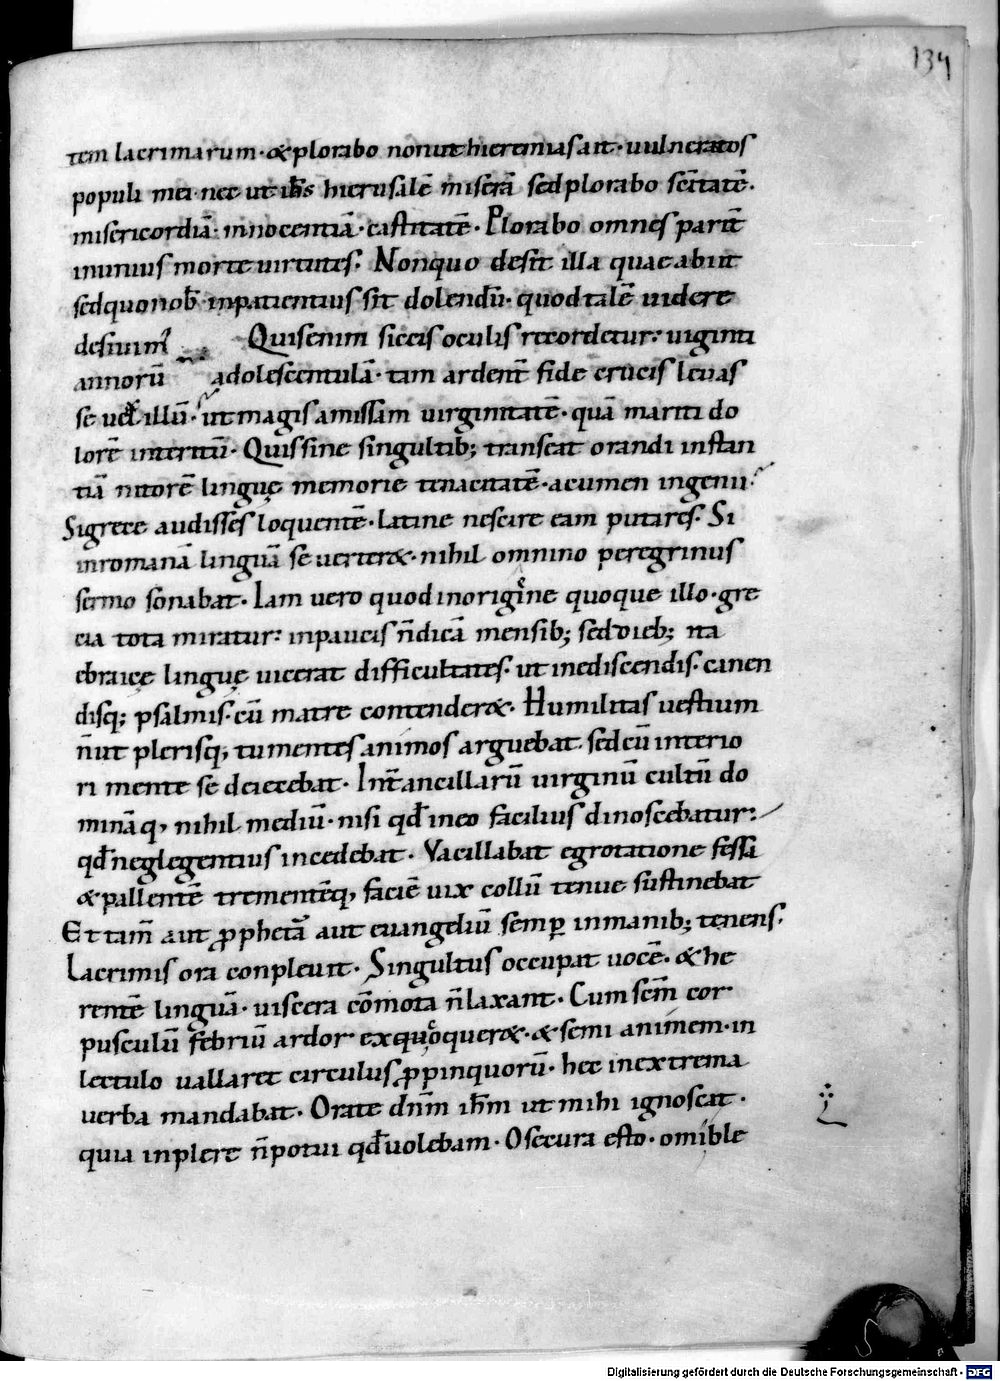 134
tem lacrimarum · & plorabo non ut hieremias ait · uulneratos
populi mei · nec ut ih̄s hierusalē miserā sed plorabo sc̄itatē ·
misericordiā · innocentiā · castitatē · Plorabo omnes parit̄
in unius morte uirtutes · Non quo desit illa quae abiit
sed quo nob̄ inpatientius sit dolendū · quod talē uidere
desiuim᾽
Quis enim siccis oculis recordetur · uiginti
annorū adolescentulā · tam ardent̄ fide crucis leuas
se uexillū · ut magis amissam uirginitatē · quā mariti do
lorē interitū · Quis sine singultib; transeat orandi instan
tiā nitorē linguę memorie tenacitatē · acumen ingenii ·
Si grece audisses loquentē · latine nescire eam putares · Si
in romanā linguā se uerter& · nihil omnino peregrinus
sermo sonabat · Iam uero quod in origine quoque illo · gre
cia tota miratur · in paucis n̄ dicā mensib; sed dieb; ita
ebraicę linguę uicerat difficultates · ut in ediscendis · canen
disq; psalmis · cū matre contender& · Humilitas uestium
n̄ ut plerisq; tumentes animos arguebat · sed cū interio
ri mente se deiecebat · Int̄ ancillarū uirginū cultū do
mināq; nihil mediū · nisi qđ in eo facilius dinoscebatur ·
qđ neglegentius incedebat · Vacillabat egrotatione fessa
& pallentē trementēq; faciē uix collū tenue sustinebat
Et tam̄ aut pphetā aut euangeliū semp in manib; tenens ·
Lacrimis ora conpleuit · Singultus occupat uocē · & he
rentē linguā · uiscera cōmota n̄ laxant · Cum sc̄m cor
pusculū febriū ardor exquoquer& · & semi animem · in
lectulo uallaret circulus ppinquorū · hec in extrema
uerba mandabat · Orate dn̄m ih̄m ut mihi ignoscat ·
quia inplere n̄ potui qđ uolebam · O secura esto · o mi ble
Digitalisierung gefördert durch die Deutsche Forschungsgemeinschaft - DFG